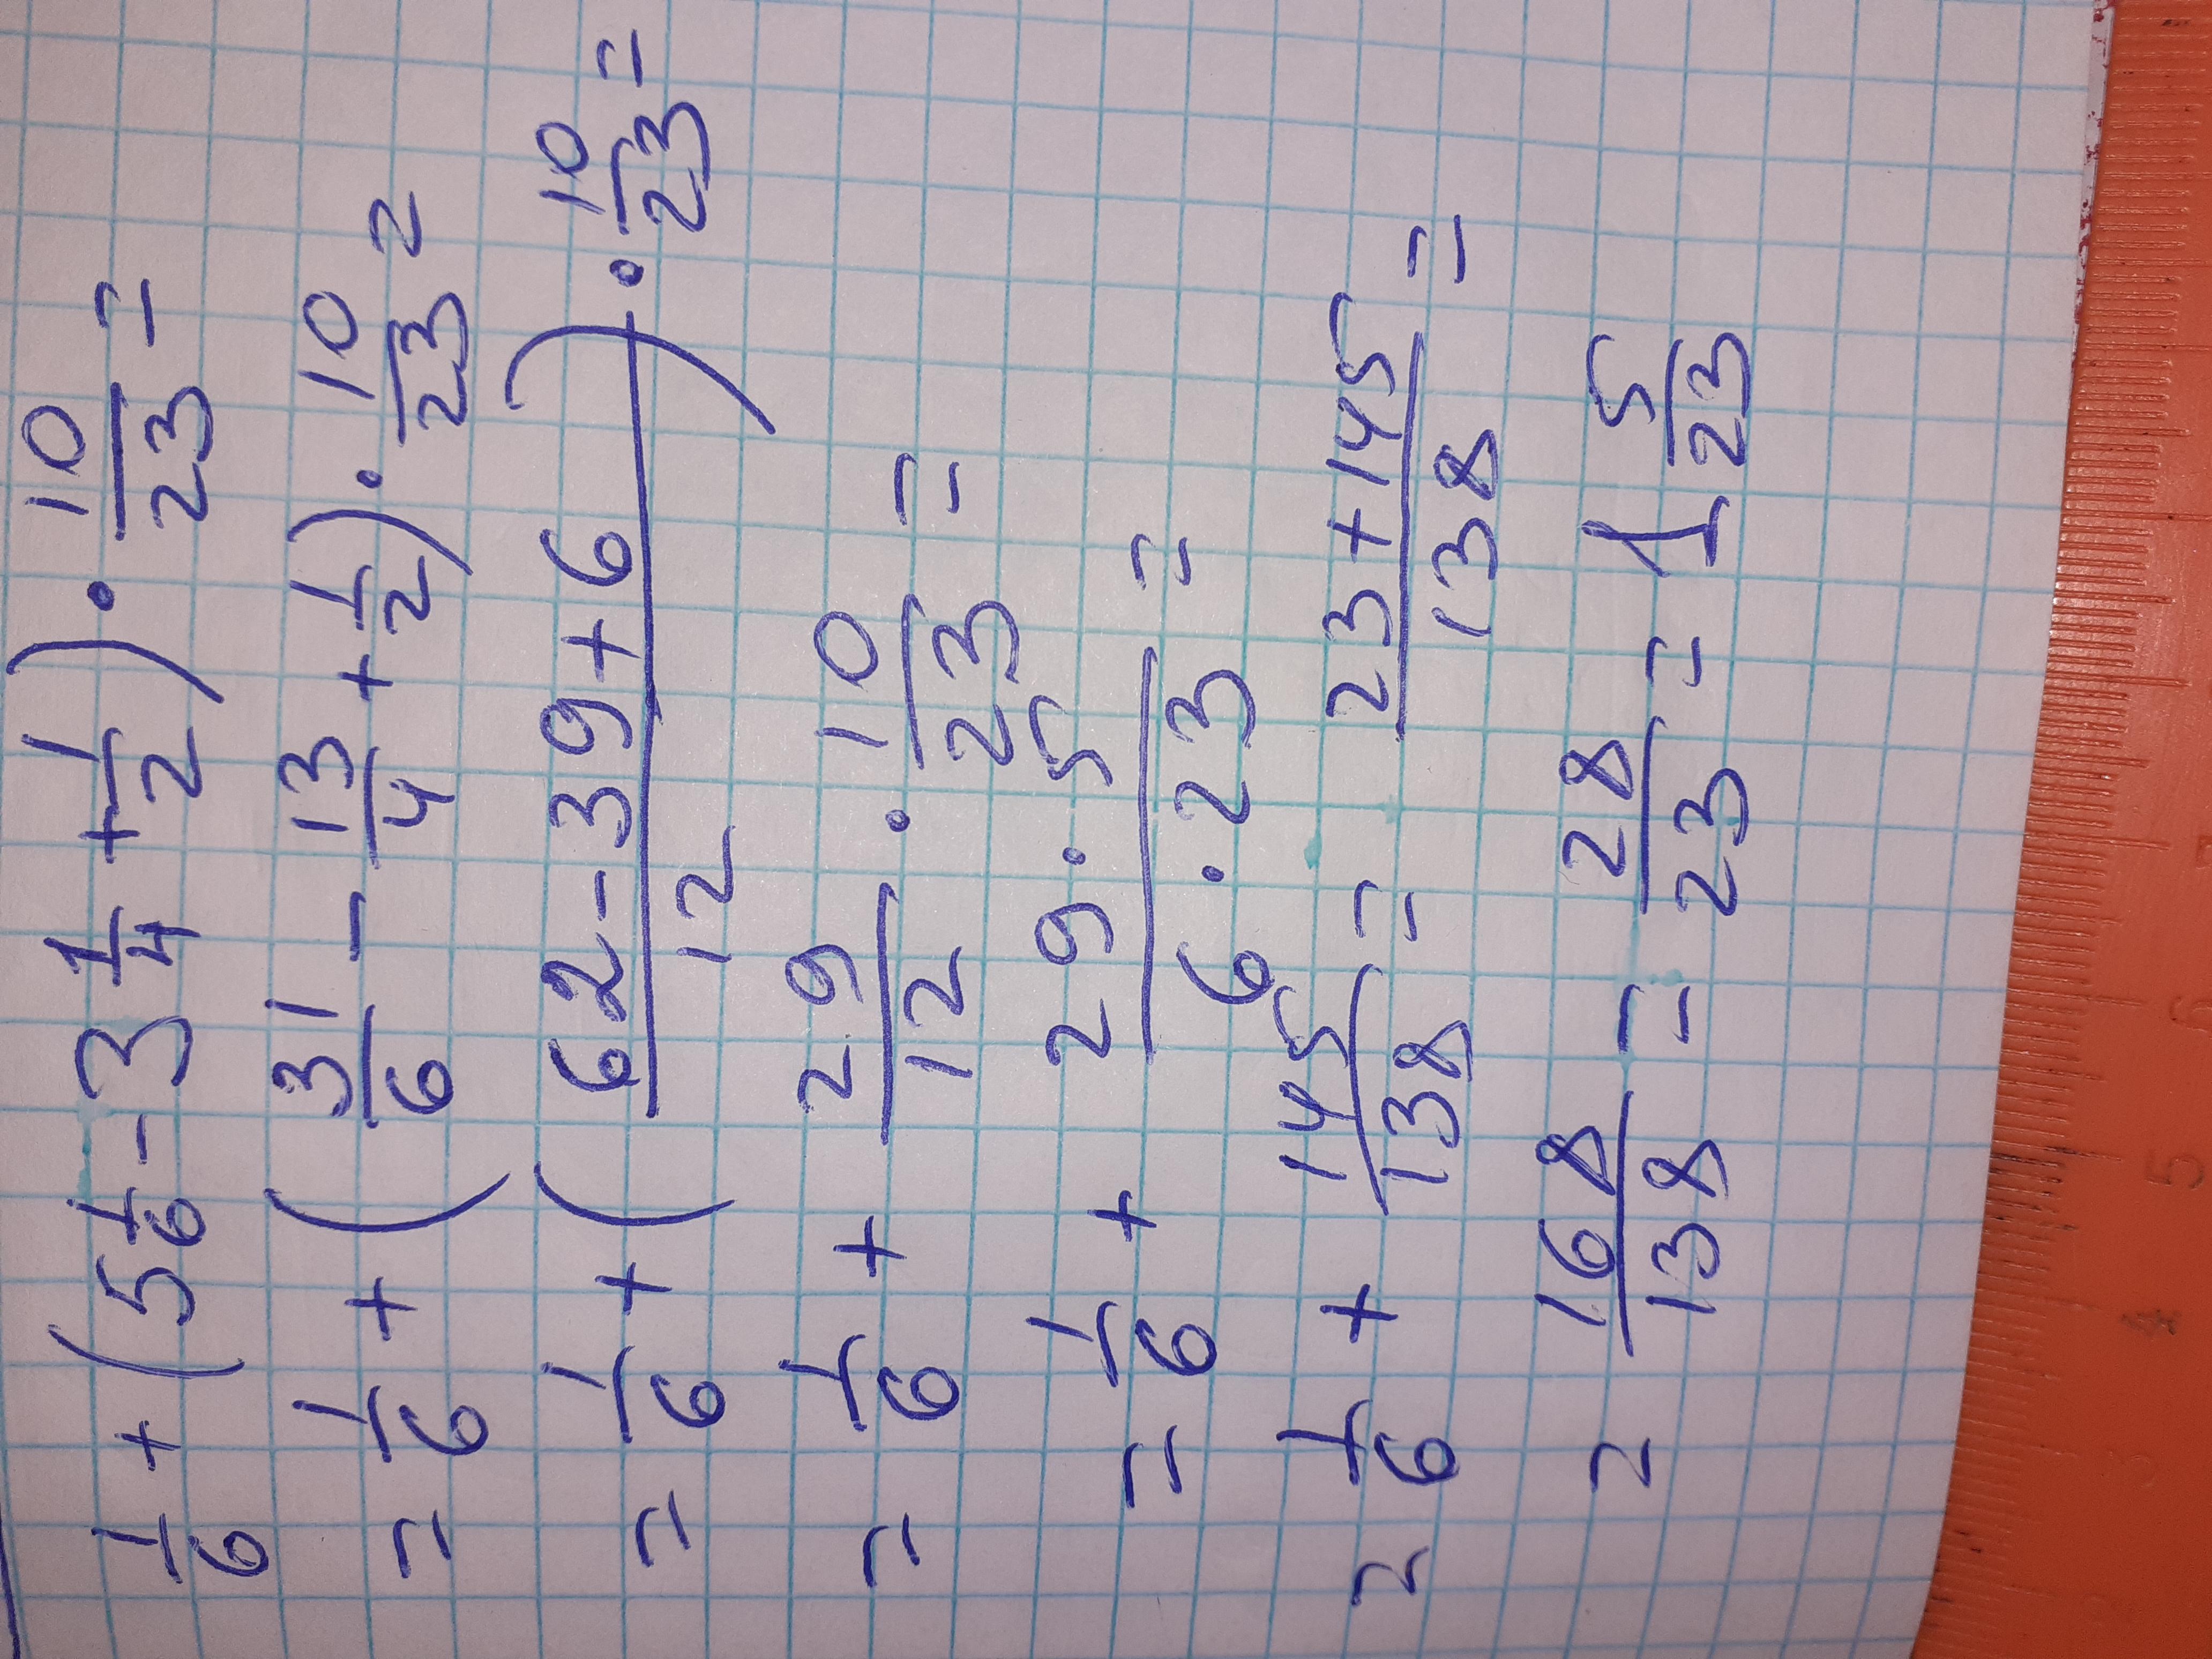 1/6 + (5 1/6 - 3 1/4 + 1/2) · 10/23 =
= 1/6 + (31/6 - 13/4 + 1/2) · 10/23 =
= 1/6 + (62 - 39 + 6 / 12) · 10/23 =
= 1/6 + 29/12 · 10/23 =
= 1/6 + 29 · 5 / 6 · 23 =
= 1/6 + 145/138 = 23 + 145 / 138 =
= 168/138 = 28/23 = 1 5/23